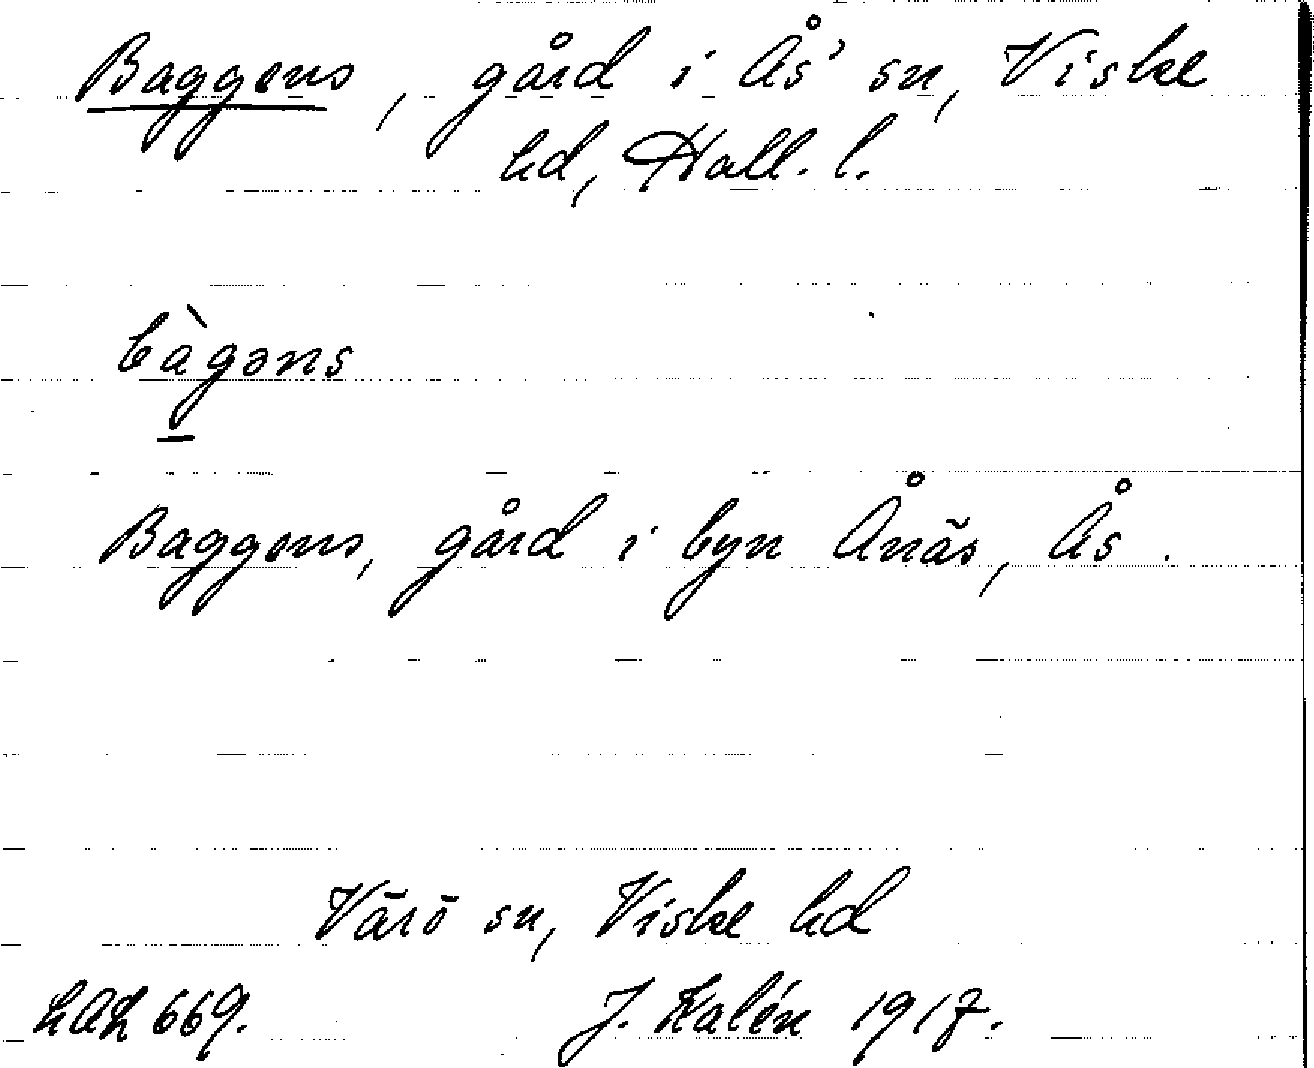 Baggens, gård i Ås' sn, Viske
hd, Hall. l.
bàgəns
Baggens, gård i byn Ånäs, Ås.
Värö sn, Viske hd
LAL 669. J. Kalén 1917.